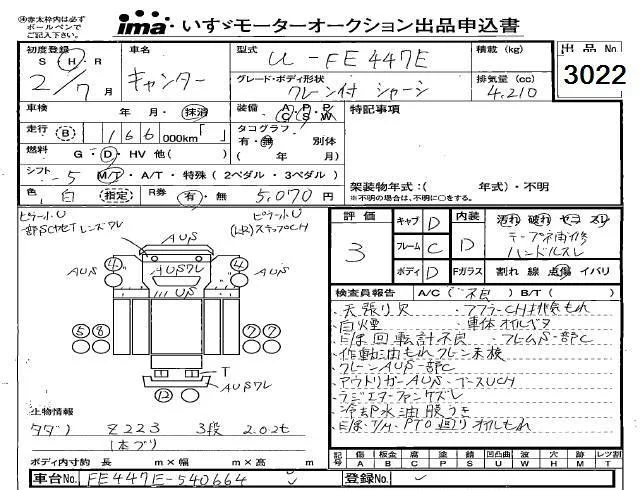 ④赤太枠内は必ず
ボールペンで
ご記入下さい。
ima・いすゞモーターオークション出品申込書
初度登録
S H・R
2/7月
車名
キャンター
型式
U-FE447E
積載 (kg)
出品No
3022
グレード・ボディ形状
クレーン付 シャーシ
排気量 (cc)
4.210
車検
年 月・抹消
装備
A/C P/S P/W
特記事項
走行 B 166 000km「 」
タコグラフ
有・無 別体
( 年 月)
燃料
G・D・HV 他( )
シフト
5 M/T・A/T・特殊 (2ペダル・3ペダル)
架装物年式:( 年式)・不明
※不明の場合は、不明に○をする。
色 白 指定 R券 有・無 5,070 円
ピラー小U
ピラー小U
(LR)ステップCH
AUS
AUS
AUSワレ
AUS
US
④ ④
⑤ ⑧ ⑦ ⑦
T
AUSワレ
⑫
評価
3
キャブ D
フレーム C
ボディ D
内装
D
Fガラス
汚れ 破れ ヤニ スレ
テープ補修
ハンドルスレ
割れ 線 点傷 イバリ
検査員報告 A/C( 不良 ) B/T( )
・天張り欠 ・マフラーCH排気もれ
・白煙 ・車体オイルベタ
・目泳 回転計不良 ・フレームS一部C
・作動油もれ クレーン未検
・クレーンAUS一部C
・アウトリガーAUS ブースUCH
・ラジエターファンケズレ
・冷却水油膜うき
T/M PTO廻りオイルもれ
生物情報
タダノ Z223 3段 2.02t
1本ブリ
ボディ内寸約 長 m×幅 m×高 m
記号 傷 A 板金 B 腐 C 塗 P 錆 S 凹凸曲 U 波 W 穴 H 跡 M レツ割 T
車台No. FE447E-540664
登録No.